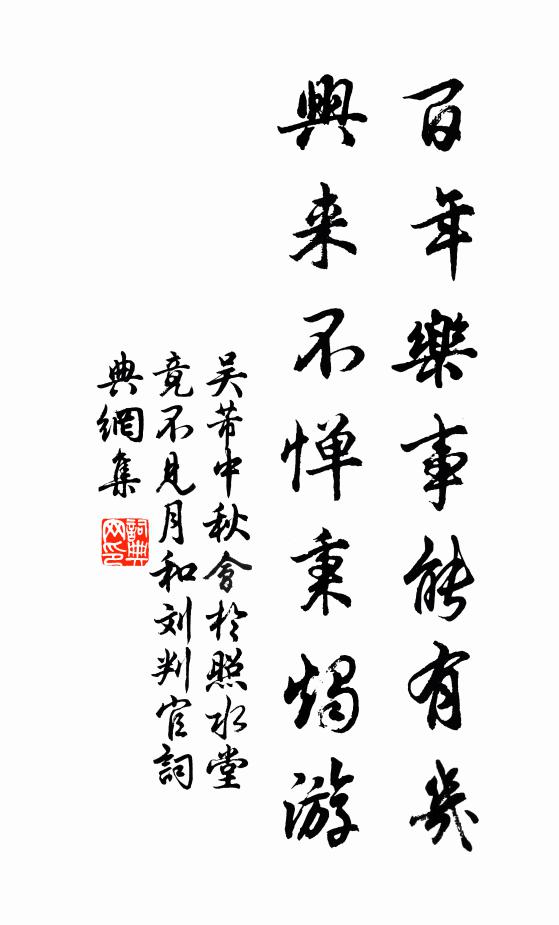 百年樂事能有幾
興来不惮秉燭游
吴芾中秋會於照水堂
竟不見月和刘判官詞
典網集
詞典网印